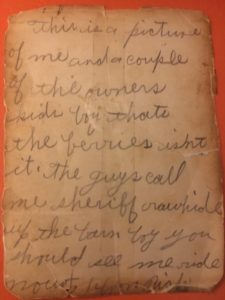 this is a picture
of me and a couple
of the owners
side by thats
the berries isnt
it. the guys call
me sheriff rawhide
up the barn by you
should see me ride
now